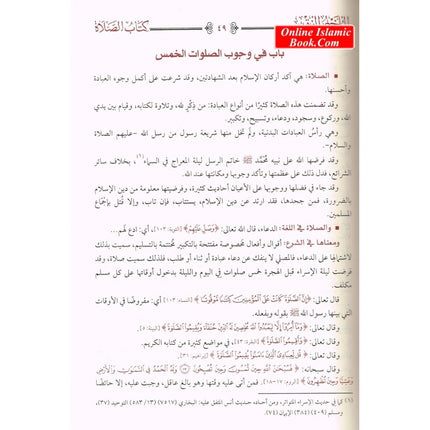 كتاب الصلاة
٤٩
Online Islamic
Book.Com
باب في وجوب الصلوات الخمس
▪ الصلاة: هي آكد أركان الإسلام بعد الشهادتين، وقد شرعت على أكمل وجوه العبادة
وأحسنها.
وقد تضمنت هذه الصلاة كثيرًا من أنواع العبادة: من ذِكْرٍ لله، وتلاوة لكتابه، وقيام بين يدي
الله، وركوع، وسجود، ودعاء، وتسبيح، وتكبير.
وهي رأسُ العبادات البدنية، ولم تخل منها شريعة رسول من رسل الله -عليهم الصلاة
والسلام-.
وقد فرضها الله على نبيه مُحمَّد ﷺ خاتم الرسل ليلة المعراج في السماء(١)، بخلاف سائر
الشرائع، فدل ذلك على عظمتها وتأكد وجوبها ومكانتها عند الله.
وقد جاء في فضلها ووجوبها على الأعيان أحاديث كثيرة، وفرضيتها معلومة من دين الإسلام
بالضرورة، فمن جحدها، فقد ارتد عن دين الإسلام، يستتاب، فإن تاب، وإلا قُتل بإجماع
المسلمين.
▪ والصلاة في اللغة: الدعاء، قال الله تعالى: ﴿وَصَلِّ عَلَيْهِمْ﴾ [التوبة: ١٠٣]، أي: ادع لهم...
ومعناها في الشرع: أقوال وأفعال مخصوصة مفتتحة بالتكبير مختتمة بالتسليم، سميت بذلك
لاشتمالها على الدعاء، فالمصلي لا ينفك عن دعاء عبادة أو ثناء أو طلب، فلذلك سميت صلاة، وقد
فرضت ليلة الإسراء قبل الهجرة خمس صلوات في اليوم والليلة بدخول أوقاتها على كل مسلم
مكلف.
قال تعالى: ﴿إِنَّ الصَّلَوٰةَ كَانَتْ عَلَى الْمُؤْمِنِينَ كِتَٰبًا مَّوْقُوتًا﴾ [النساء: ١٠٣] أي: مفروضًا في الأوقات
التي بينها رسول الله ﷺ بقوله وبفعله.
وقال تعالى: ﴿وَمَا أُمِرُوا إِلَّا لِيَعْبُدُوا اللَّهَ مُخْلِصِينَ لَهُ الدِّينَ حُنَفَاءَ وَيُقِيمُوا الصَّلَوٰةَ﴾ [البينة: ٥].
وقال تعالى: ﴿وَأَقِيمُوا الصَّلَوٰةَ﴾، في مواضع كثيرة من كتابه الكريم.
وقال تعالى: ﴿قُل لِّعِبَادِيَ الَّذِينَ ءَامَنُوا يُقِيمُوا الصَّلَوٰةَ﴾ [إبراهيم: ٣١].
وقال سبحانه: ﴿فَسُبْحَٰنَ اللَّهِ حِينَ تُمْسُونَ وَحِينَ تُصْبِحُونَ ﴿١٧﴾ وَلَهُ الْحَمْدُ فِي السَّمَٰوَٰتِ وَالْأَرْضِ
وَعَشِيًّا وَحِينَ تُظْهِرُونَ﴾ [الروم: ١٧-١٨]، فمن أتى عليه وقتها وهو بالغ عاقل، وجبت عليه، إلا حائضًا
(١) كما في حديث الإسراء المتواتر، ومن أصحه: حديث أنس المتفق عليه: البخاري (٧٥١٧) [٥٨٣/١٣] التوحيد (٣٧)،
ومسلم (٤٠٩) [٣٨٤/١] الإيمان (٧٤).